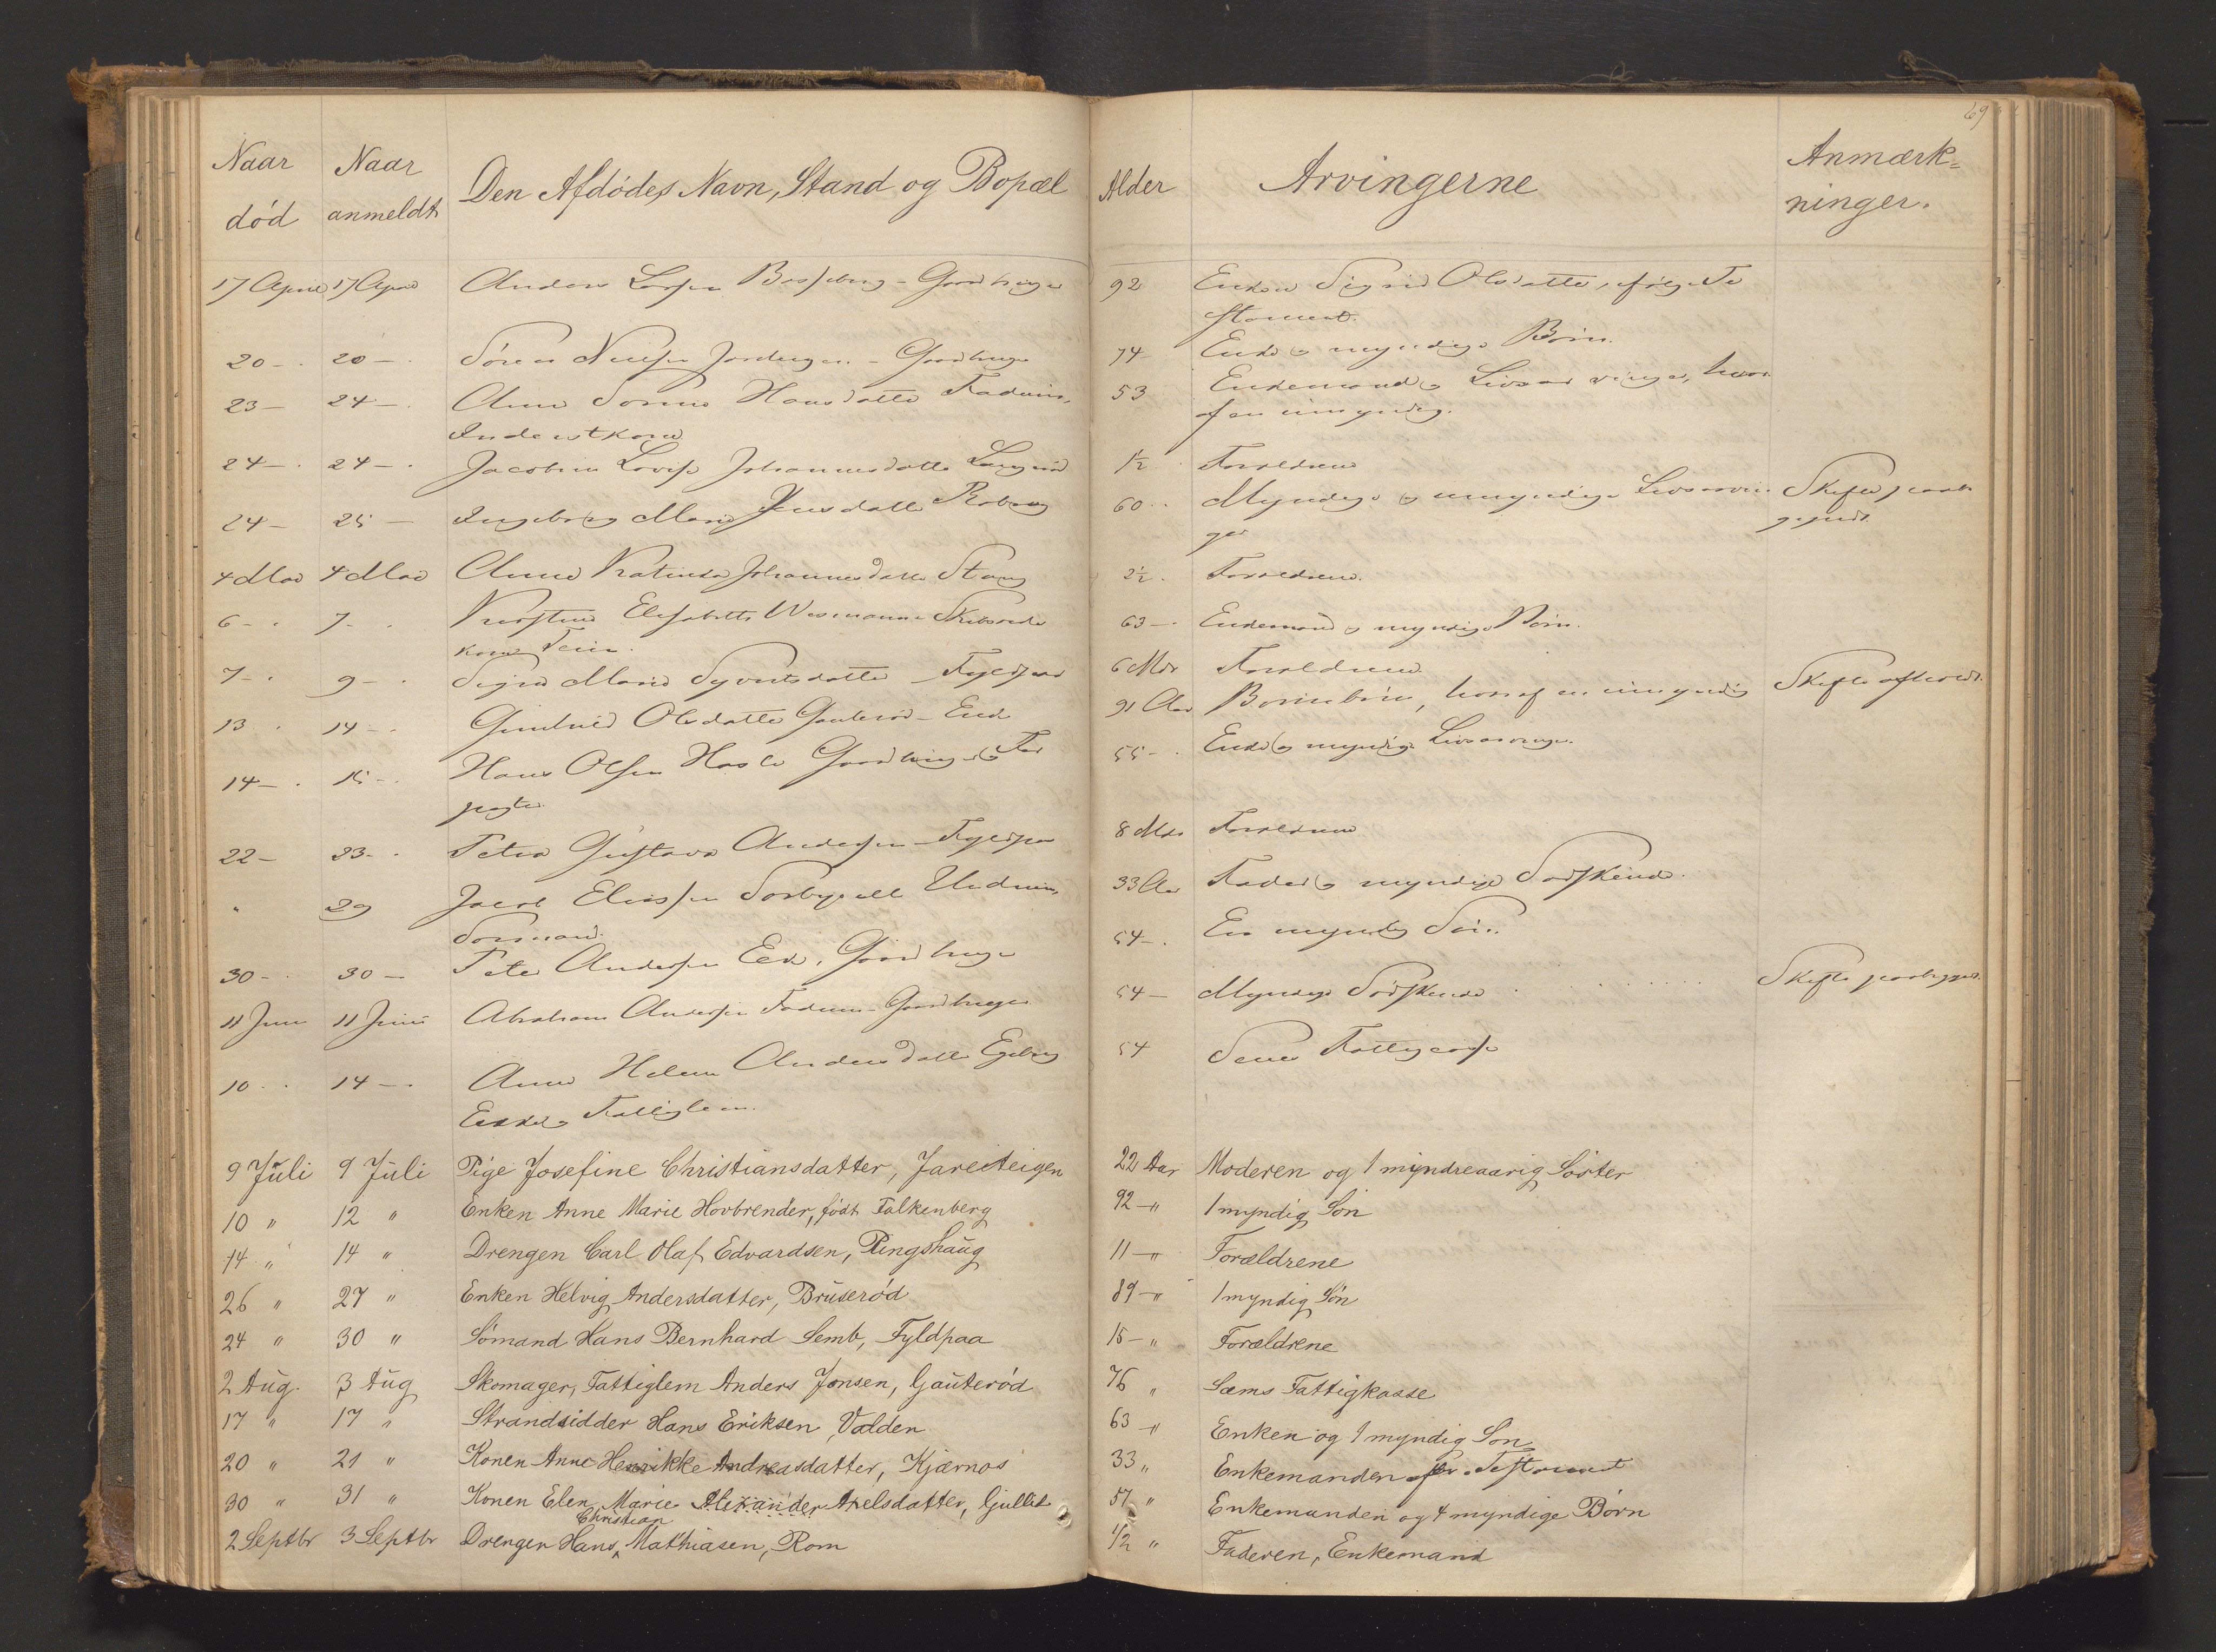 69
Naar død | Naar anmeldt | Den Afdødes Navn, Stand og Bopæl | Alder | Arvingerne | Anmærkninger.
17 April | 17 April | Anders Larsen Gaardbruger | 92 | Enken Sigrid Olsdatter, ifølge Te
stament.
20 – | 20 – | Søren Nielsen – Gaardbruger | 74 | Enke og myndige Børn.
23 – | 24 – | Anne Hansdatter Fadum, | 53 | Enkemand og Livsarvinger, hvor
Inderstkone | af en umyndig.
24 – | 24 – | Jacobine Lovise Johannesdatter | 1½ | Forældrene
24 – | 25 – | Ingeborg Marie Jensdatter | 60 | Myndige og umyndige Livsarvin | Skifte
ger
4 Mai | 4 Mai | Anne Johannesdatter Stang | 2½ | Forældrene.
6 – | 7 – | Elisabeth | 63 – | Enkemand og myndige Børn.
kone
7 – | 9 – | Marie Syvertsdatter – Fyldpaa | 6 Mdr | Forældrene
13 | 14 – | Gunhild Olsdatter Gauterød – Enke | 91 Aar | Børnebørn, hvoraf en umyndig | Skifte afholdt.
14 – | 15 – | Hans Olsen Hasle Gaardbruger og | 55 – | Enke og myndige Livsarvinger.
22 – | 23 – | Petra Gustava Andersen – Fyldpaa | 8 Mdr | Forældrene
" | 29 | Jacob Eliassen | 33 Aar | Fader og myndige Sødskende.
Sømand.
30 – | 30 – | Peter Andersen Eek, Gaardbruger | 54 – | En myndig Søn.
11 Juni | 11 Juni | Abraham Andersen Fadum – Gaardbruger | 54 – | Myndige Sødskende | Skifte
10 | 14 – | Anne Helene Andersdatter | 54 | Sems Fattigcasse
Enke, Fattiglem.
9 Juli | 9 Juli | Pige Josefine Christiansdatter, Jareiteigen | 22 Aar | Moderen og 1 myndreaarig Søster
10 " | 12 " | Enken Anne Marie Hovbrender, født Falkenberg | 92 – " | 1 myndig Søn
14 " | 14 " | Drengen Carl Olaf Edvardsen, Ringshaug | 11 – " | Forældrene
26 " | 27 " | Enken Helvig Andersdatter, Bruserød | 89 – " | 1 myndig Søn
24 " | 30 " | Sømand Hans Bernhard Semb, Fyldpaa | 15 – " | Forældrene
2 Aug. | 3 Aug | Skomager, Fattiglem Anders Jonsen, Gauterød | 76 " | Sæms Fattigkasse
17 " | 17 " | Strandsidder Hans Eriksen, Valden | 63 – " | Enken og 1 myndig Søn
20 " | 21 " | Konen Anne Henrikke Andreasdatter, Kjærnos | 33 " | Enkemanden Testament
30 " | 31 " | Konen Elen Marie Alexander Axelsdatter, Gulli | 57 " | Enkemanden og 4 myndige Børn
2 Septbr | 3 Septbr | Drengen Hans Christian Mathiasen, Rom | 1/2 " | Faderen, Enkemand